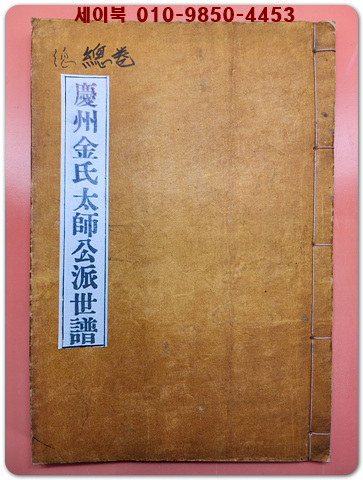 세이북 010-9850-4453
總卷
慶州金氏太師公派世譜